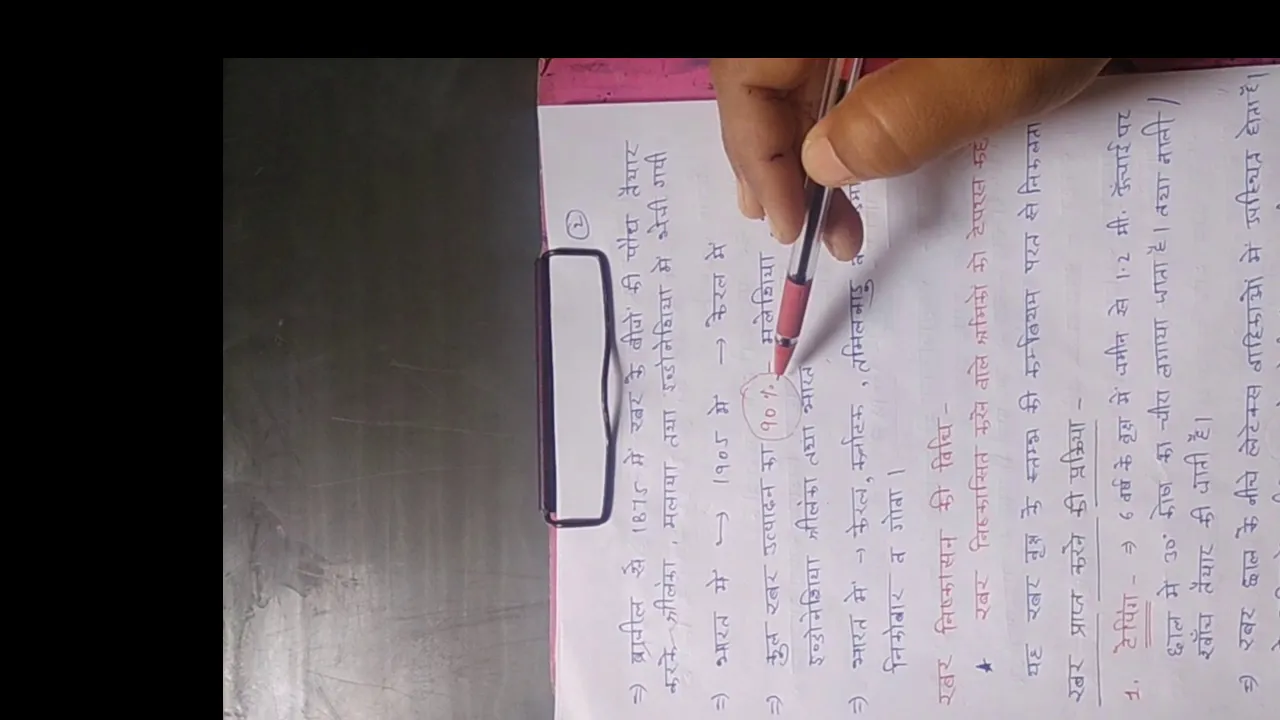 ②
⇒ ब्राजील से 1875 में रबर के बीजों की पौध तैयार
करके श्रीलंका, मलाया तथा इण्डोनेशिया मे भेजी गयी
⇒ भारत में → 1905 में → केरल में
⇒ कुल रबर उत्पादन का 90% - मलेशिया
इण्डोनेशिया श्रीलंका तथा भारत
⇒ भारत में → केरल, कर्नाटक, तमिलनाडु
निकोबार व गोवा।
रबर निष्कासन की विधि -
★ रबर निष्कासित करने वाले श्रमिको को टेपरस
यह रबर वृक्ष के स्तम्भ की कम्बियम परत से निकलता
रबर प्राप्त करने की प्रक्रिया -
1. टैपिंग - ⇒ 6 वर्ष के वृक्ष में जमीन से 1.2 मी. ऊँचाई पर
छाल में 30° कोण का चीरा लगाया जाता है। तथा नाली /
खाँच तैयार की जाती है।
⇒ रबर छाल के नीचे लेटेक्स वाहिकाओं में उपस्थित होता है।